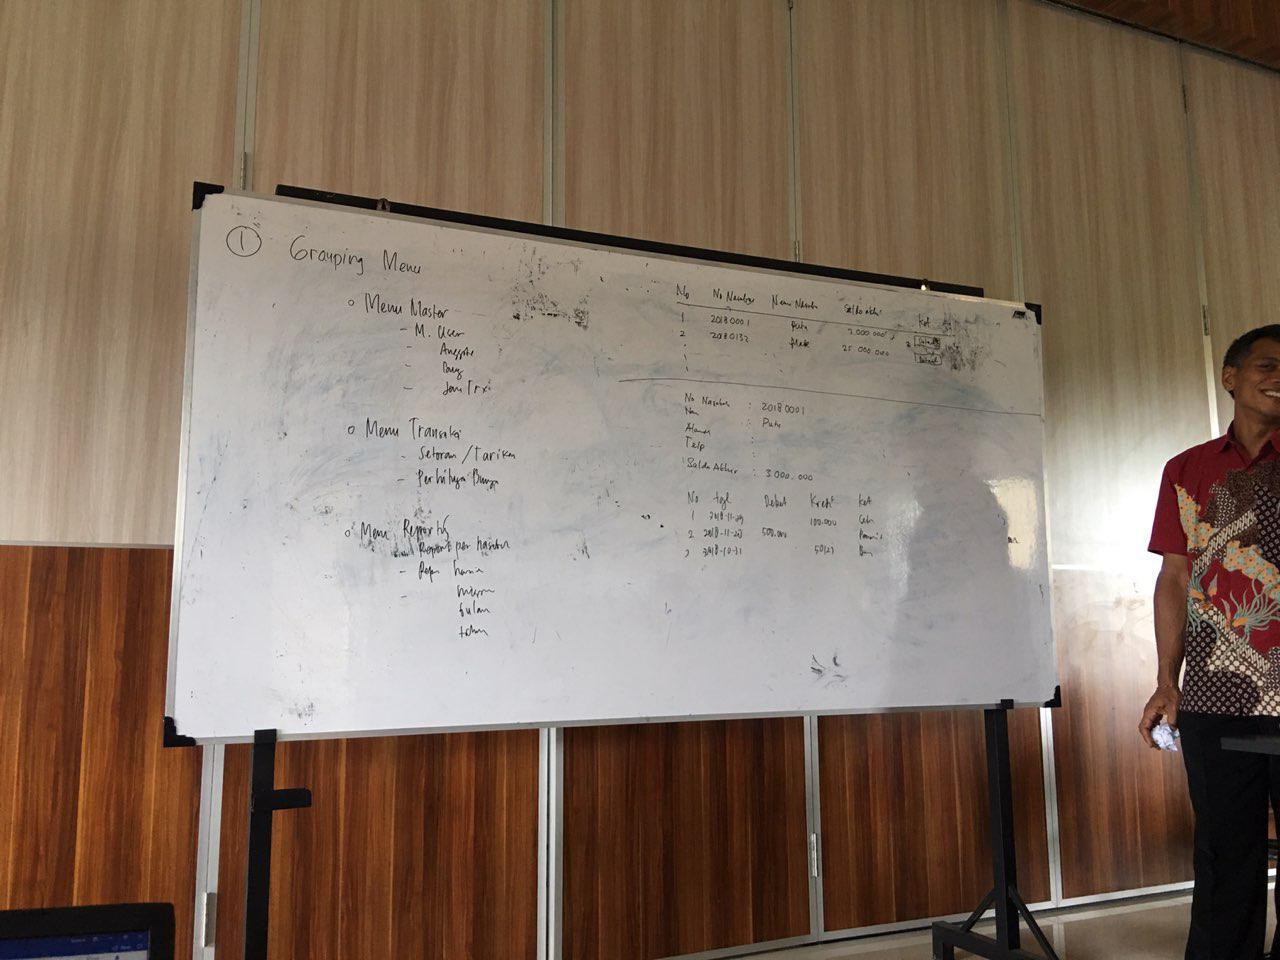 1 Grouping Menu
o Menu Master
- M. User
Anggota
- Bunga
- Jenis Trxi
o Menu Transaksi
- Setoran / Tarikan
- Perhitungan Bunga
o Menu Reporting
- Report per nasabah
-
bulan
tahun
No No Nasabah Nama Nasabah Saldo akhir Ket
1 20180001 Putu 2.000.000
2 20180132 Made 25.000.000
No Nasabah : 20180001
Nama : Putu
Alamat :
Telp :
Saldo Akhir : 3.000.000
No tgl Debet Kredit Ket
1 2018-11-29 100.000
2 2018-11-20 500.000
2018-10-31